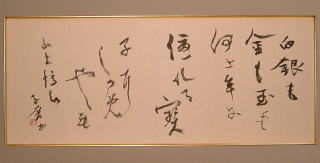 白銀も
金も玉も
何せむに
優れる寶
子に
しかめ
やも
山上憶良